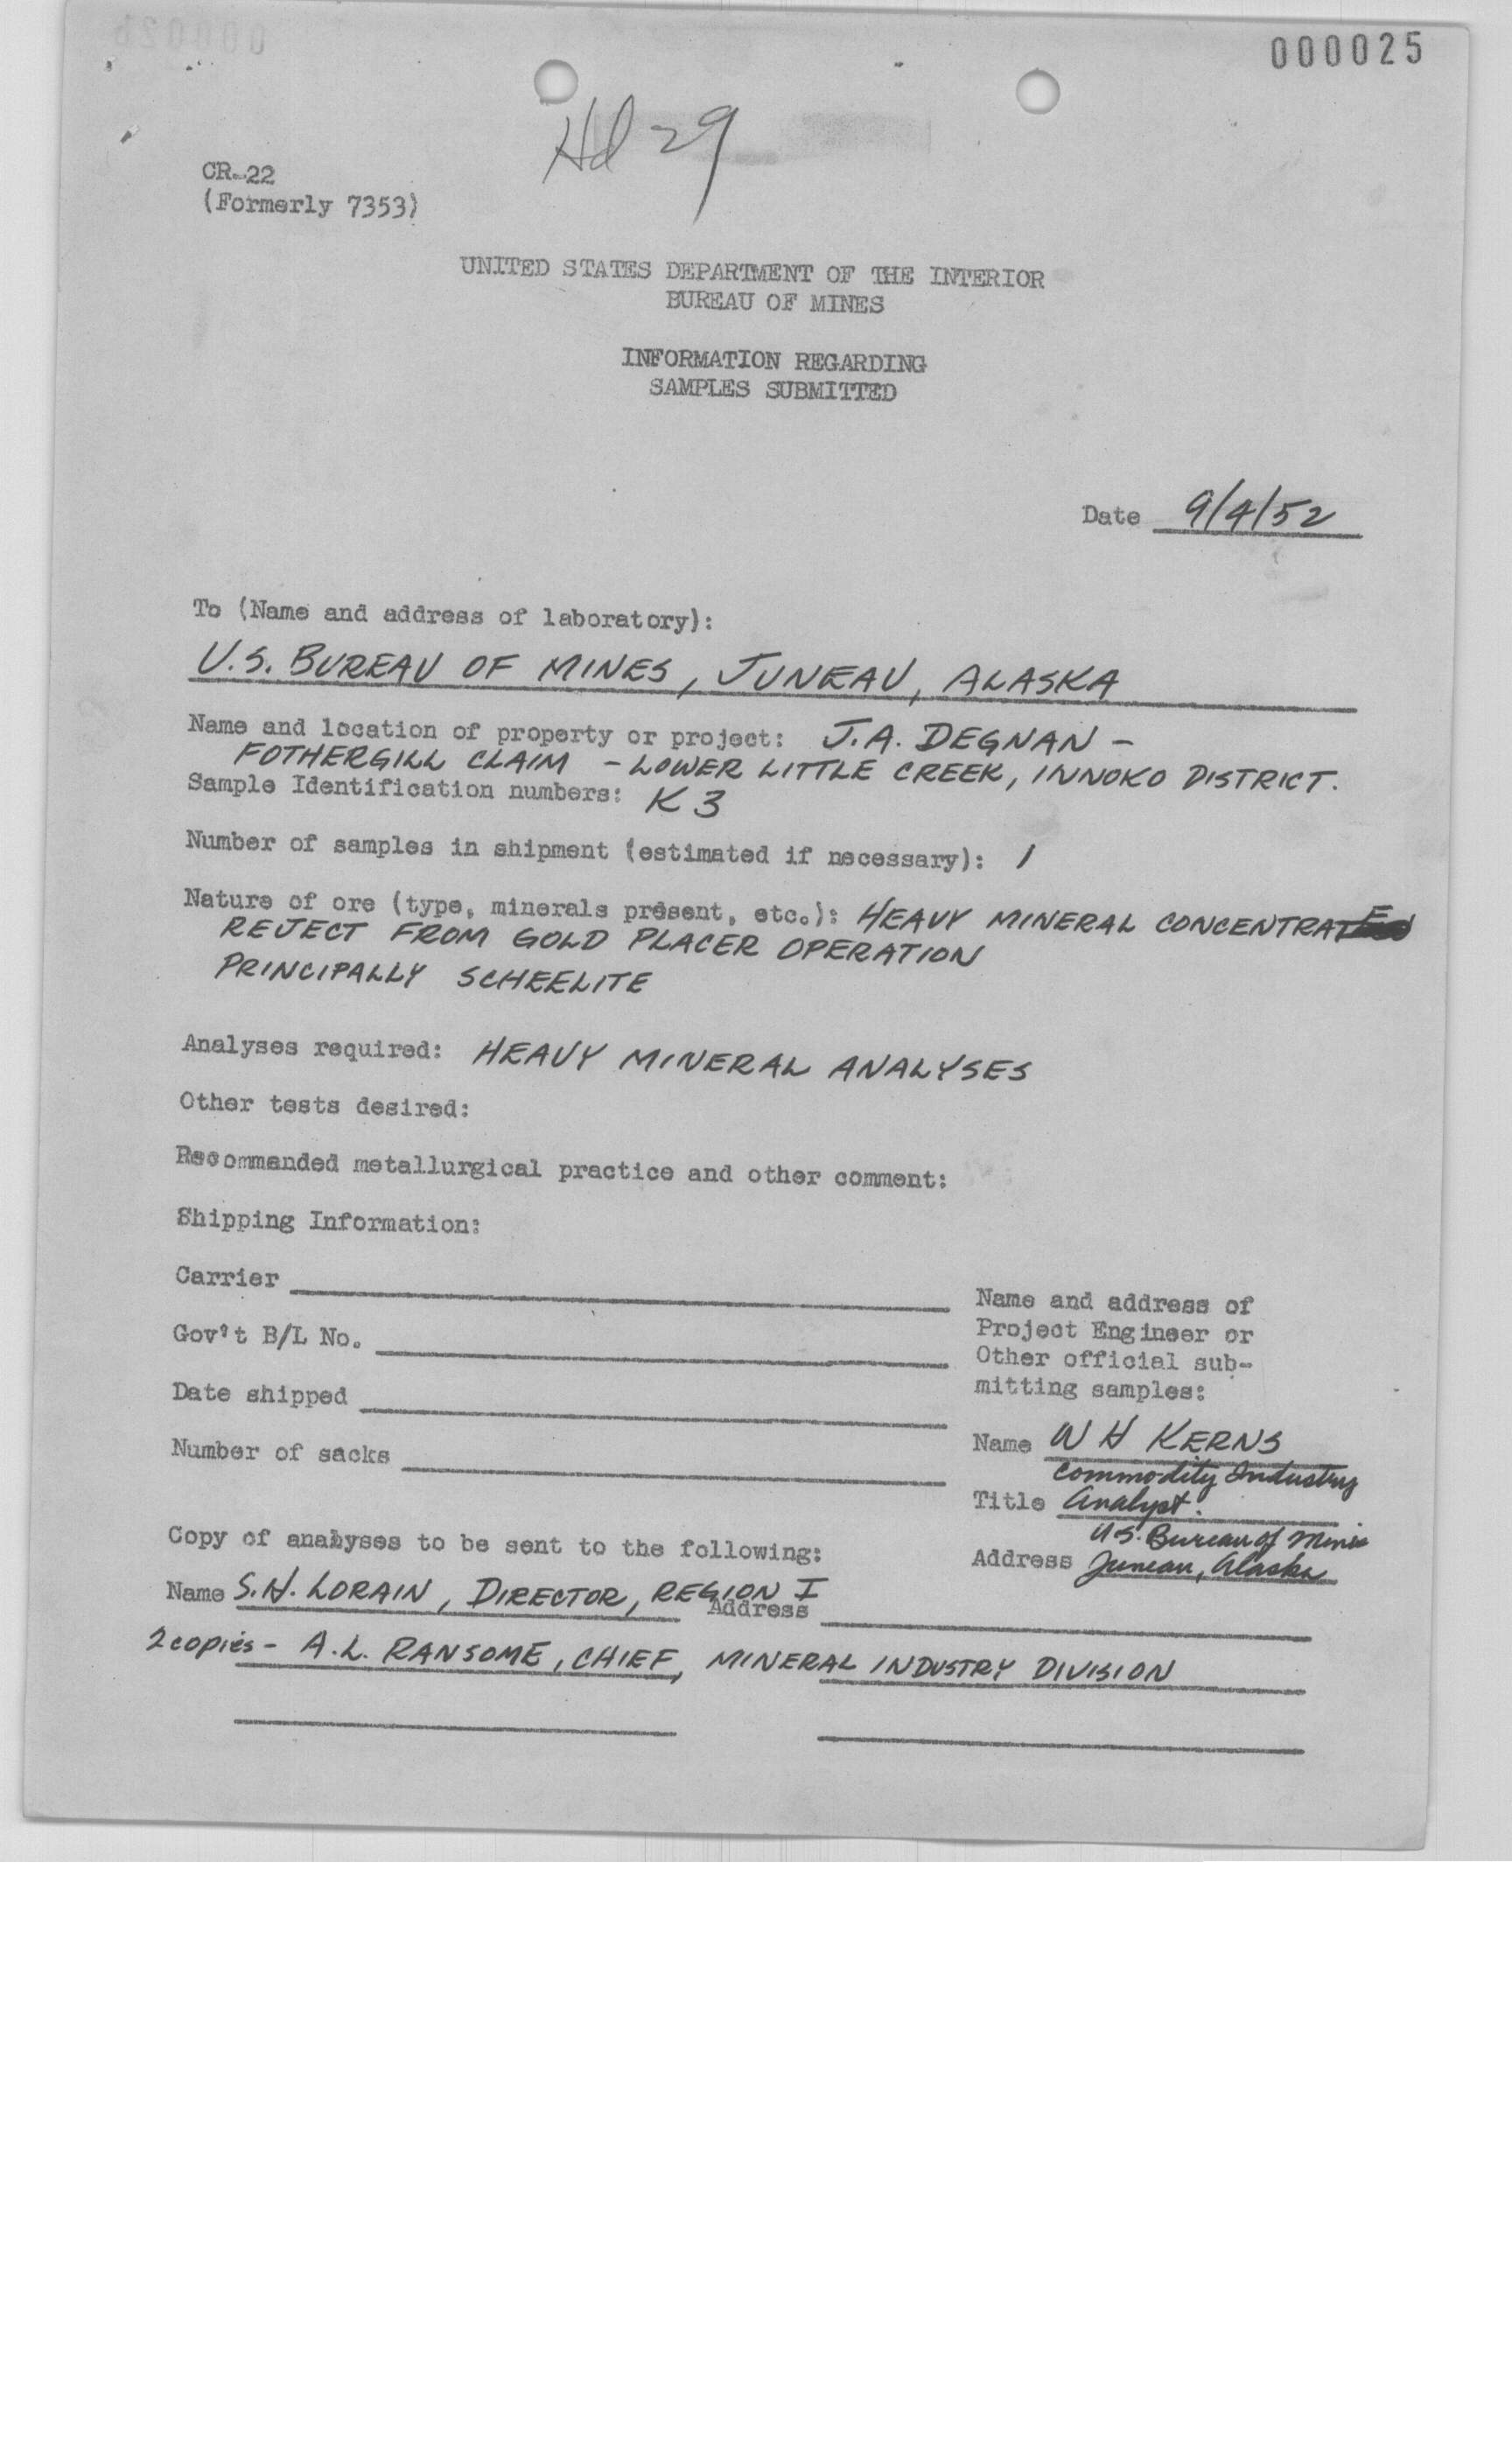 000025
Hd 29
CR-22
(Formerly 7353)
UNITED STATES DEPARTMENT OF THE INTERIOR
BUREAU OF MINES
INFORMATION REGARDING
SAMPLES SUBMITTED
Date 9/4/52
To (Name and address of laboratory):
U.S. BUREAU OF MINES, JUNEAU, ALASKA
Name and location of property or project: J.A. DEGNAN -
FOTHERGILL CLAIM - LOWER LITTLE CREEK, INNOKO DISTRICT.
Sample Identification numbers: K 3
Number of samples in shipment (estimated if necessary): 1
Nature of ore (type, minerals present, etc.): HEAVY MINERAL CONCENTRATE
REJECT FROM GOLD PLACER OPERATION
PRINCIPALLY SCHEELITE
Analyses required: HEAVY MINERAL ANALYSES
Other tests desired:
Recommended metallurgical practice and other comment:
Shipping Information:
Carrier
Gov't B/L No.
Date shipped
Number of sacks
Name and address of
Project Engineer or
Other official sub-
mitting samples:
Name W H KERNS
Commodity Industry
Title Analyst.
U.S. Bureau of Mines
Address Juneau, Alaska
Copy of analyses to be sent to the following:
Name S.H. LORAIN, DIRECTOR, REGION I Address
2 copies - A.L. RANSOME, CHIEF, MINERAL INDUSTRY DIVISION